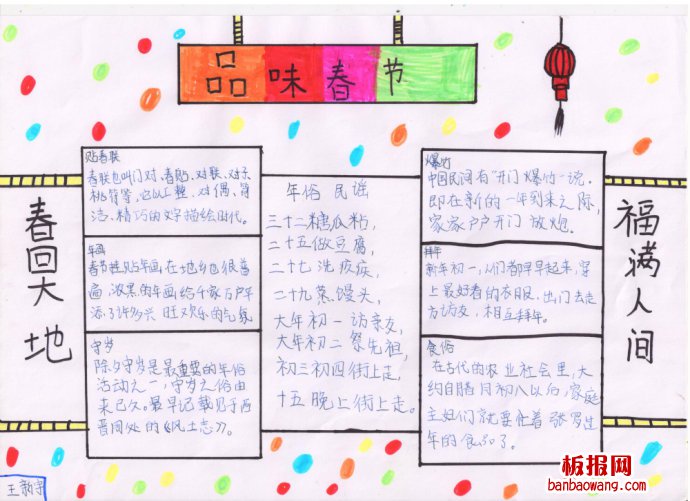 品味春节
春回大地
贴春联
春联也叫门对、春贴、对联、对子、
桃符等,它以工整、对偶、简
洁、精巧的文字描绘时代。
年画
春节挂贴年画在地乡也很普
遍,浓黑的年画给千家万户平
添了许多兴旺欢乐的气氛
守岁
除夕守岁是最重要的年俗
活动之一,守岁之俗由
来已久。最早记载见于西
晋周处的《风土志》。
年俗 民谣
二十二糖瓜粘,
二十五做豆腐,
二十七洗疚疾,
二十九蒸馒头,
大年初一访亲友,
大年初二祭先祖,
初三初四街上走,
十五晚上街上走。
爆竹
中国民间有“开门爆竹”一说。
即在新的一年到来之际,
家家户户开门放炮。
拜年
新年初一,人们都早早起来,穿
上最好看的衣服,出门去走
方访友,相互拜年。
食俗
在古代的农业社会里,大
约自腊月初八以后,家庭
主妇们就要忙着张罗过
年的食品了。
福满人间
王
板报网
banbaowang.com